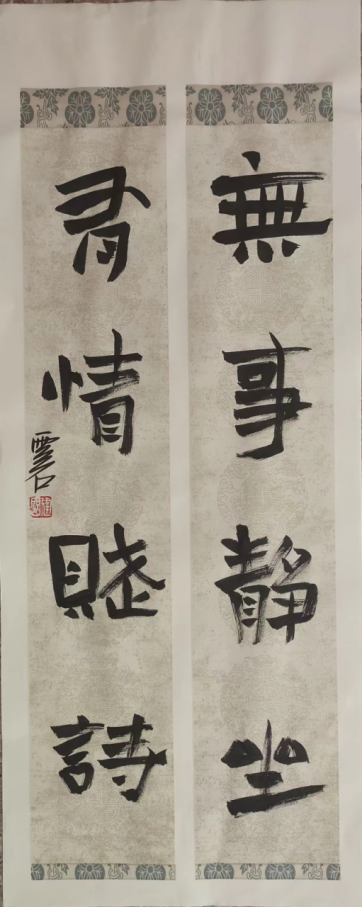 無事靜坐
有情賦詩